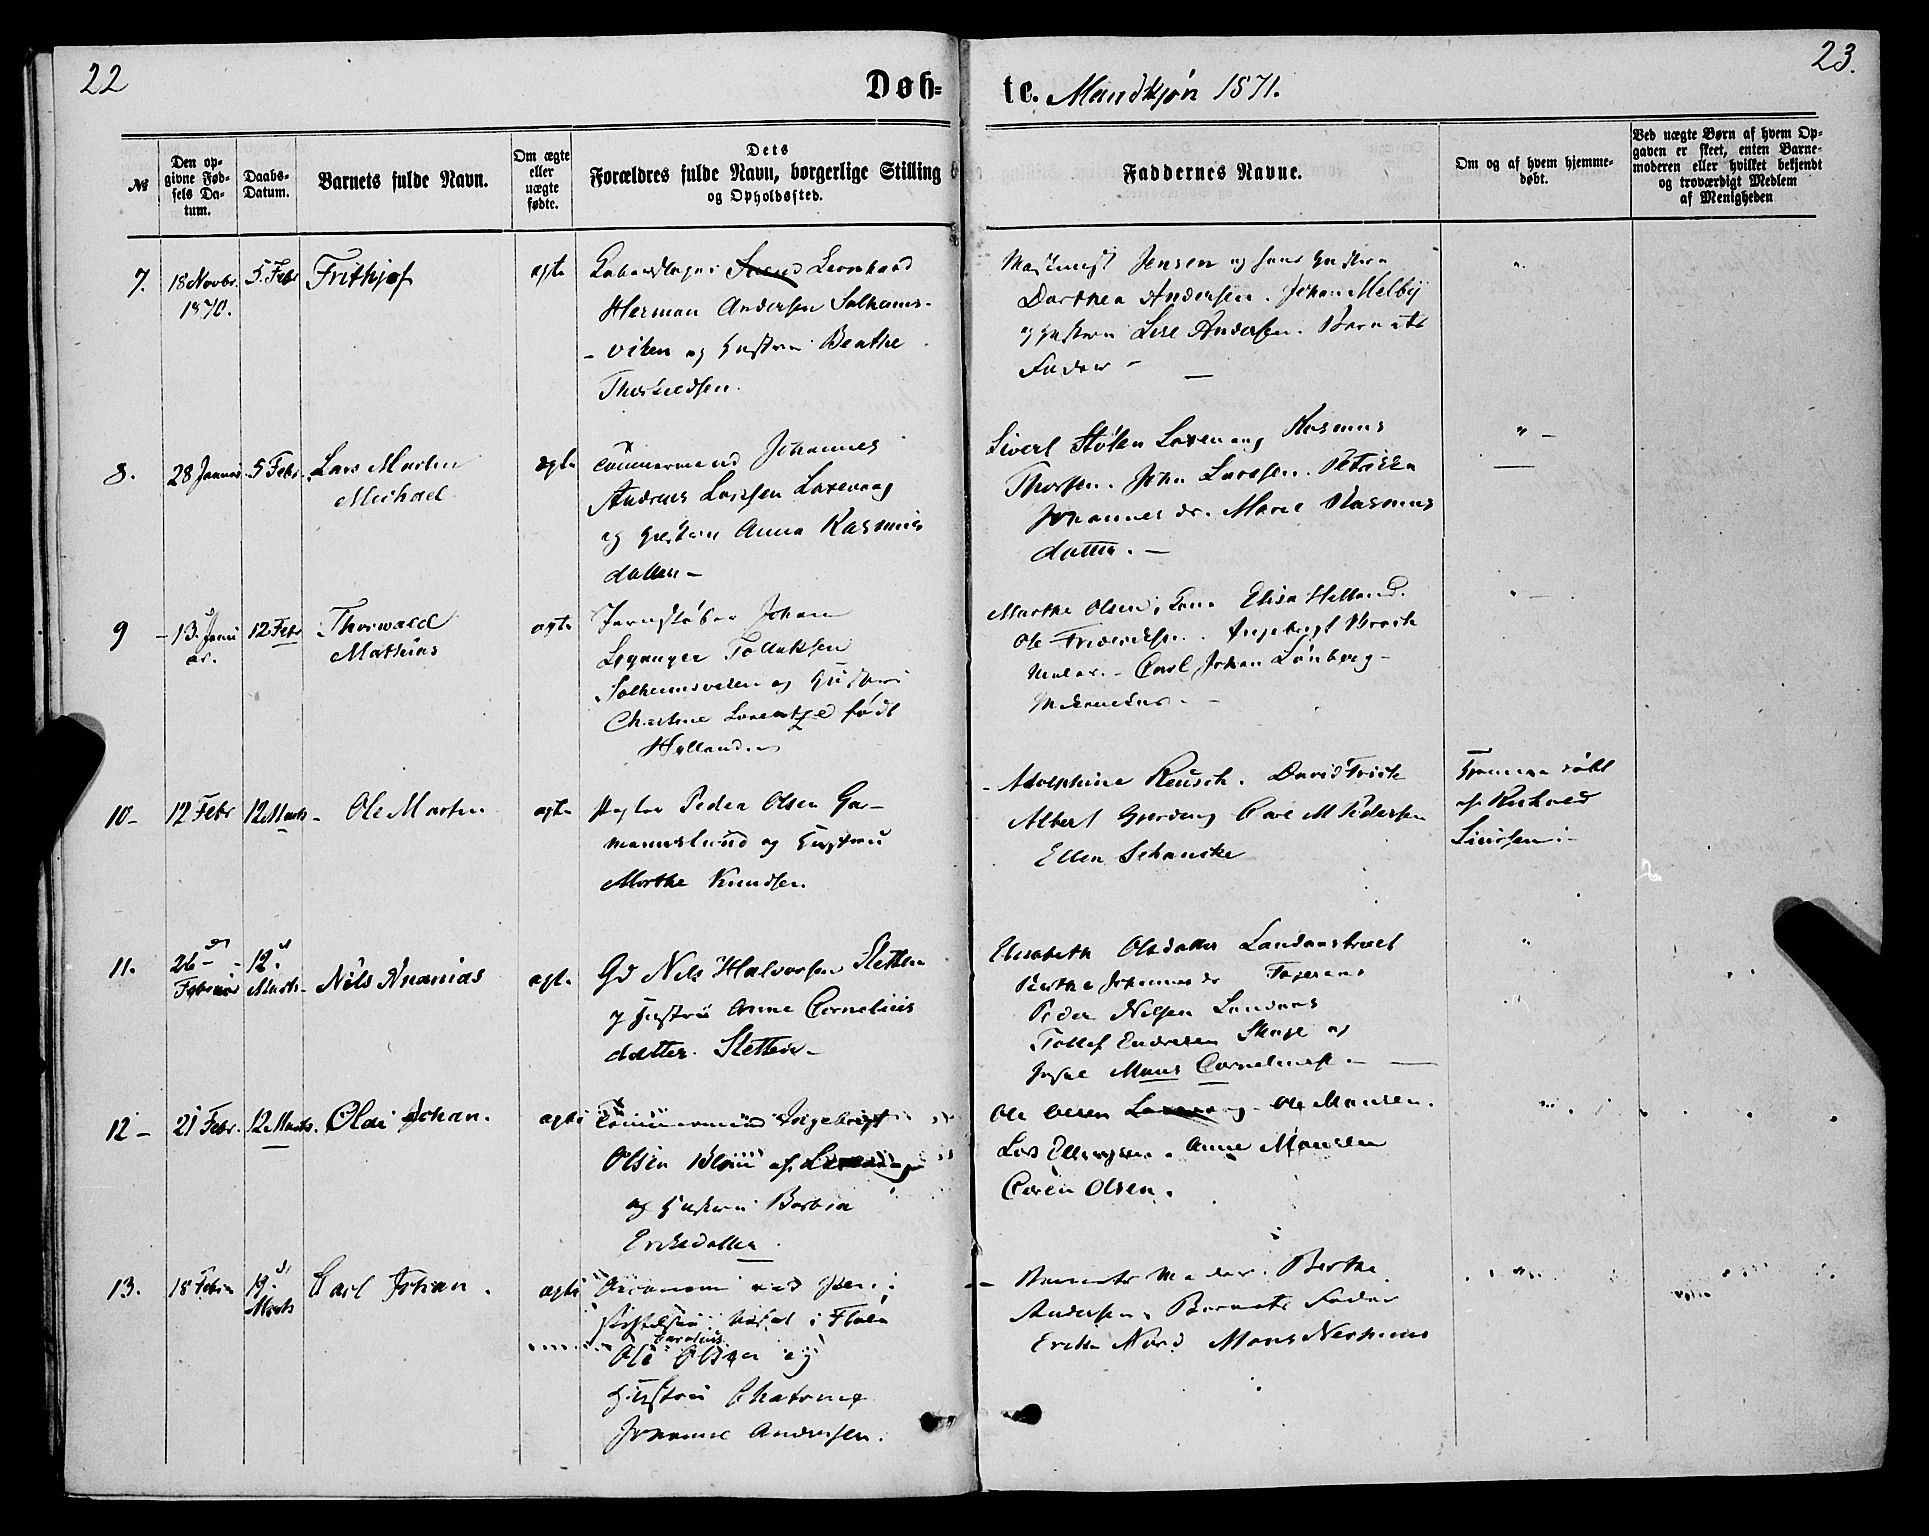 22
23.
Døb-
te. Mandkjøn 1871.
№
Den op-
givne Fød-
sels Da-
tum.
Daabs-
Datum.
Barnets fulde Navn.
Om ægte
eller
uægte
fødte.
Dets
Forældres fulde Navn, borgerlige Stilling
og Opholdssted.
Faddernes Navne.
Om og af hvem hjemme-
døbt.
Ved uægte Børn af hvem Op-
gaven er skeet, enten Barne-
moderen eller hvilket bekjendt
og troværdigt Medlem
af Menigheden
7.
18 Novbr.
1870.
5. Febr
Frithjof
ægte
Leonhard
Herman Andersen Solheims-
- viken og Hustru Beathe
Jensen og hans Hustru
Dorthea Andersen. Johan Melby
og Hustru Lise Andersen. Barnets
Fader -
"
8.
28 Januar
5 Febr.
Lars Martin
Michael
ægte
Tømmermand Johannes
Andreas Larssen Laxevaag
og Hustru Anna Rasmus
datter -
Sivert Stølen Laxevaag Rasmus
Thorsen. John Larssen. Petrikka
Johannes dr. Marie Rasmus
datter. -
" -
9
- 13. Janu
ar.
12 Febr
Thorwald
Mathias
ægte
Jernstøber Johan
Leganger Tollaksen
Solheimsviken og Hustru
Christine Lorentze født
Marthe Olsen, Lena Elisa Helland.
Ole Fredriksen. Ingebrigt Brock
Maler. - Carl Johan Lönberg -
" -
10 -
12 Febr
12 Marts -
Ole Martin
ægte
Peder Olsen Gar-
mannslund og Hustru
Marthe Knudsen.
- Adolphine Reusch. David Frich
Albert Gjerding Carl M Pedersen
Ellen Schancke
Hjemmedøbt
af Richard
11.
26 -
Februar
12.
Marts -
Nils Ananias
ægte
Gd Nils Halvorsen Sletten
og Hustru Anne Cornelius
datter. Sletten -
Elisabeth Olsdatter Landaastræet
Berthe Johannesdr
Peder Nilsen Landaas
Tollef Endresen Skage og
Mons Cornelius -
"
12 -
21 Febr.
12 Marts.
Olai Johan.
ægte
Tømmermand Ingebrigt
Olsen af
og Hustru Barbra
Eriksdatter.
Ole Olsen Ole Monsen.
Lars Ellingsen. Anne Monsen
Coren Olsen.
"
13.
18 Febru
19.
Marts
Carl Johan.
ægte
ved
i
Ole Olsen og
Hustru Chatrine
Johanne Andersen.
- Barnets Moder. Berthe
Andersen. Barnets Fader
Erik Nord Mons Neshuus
"